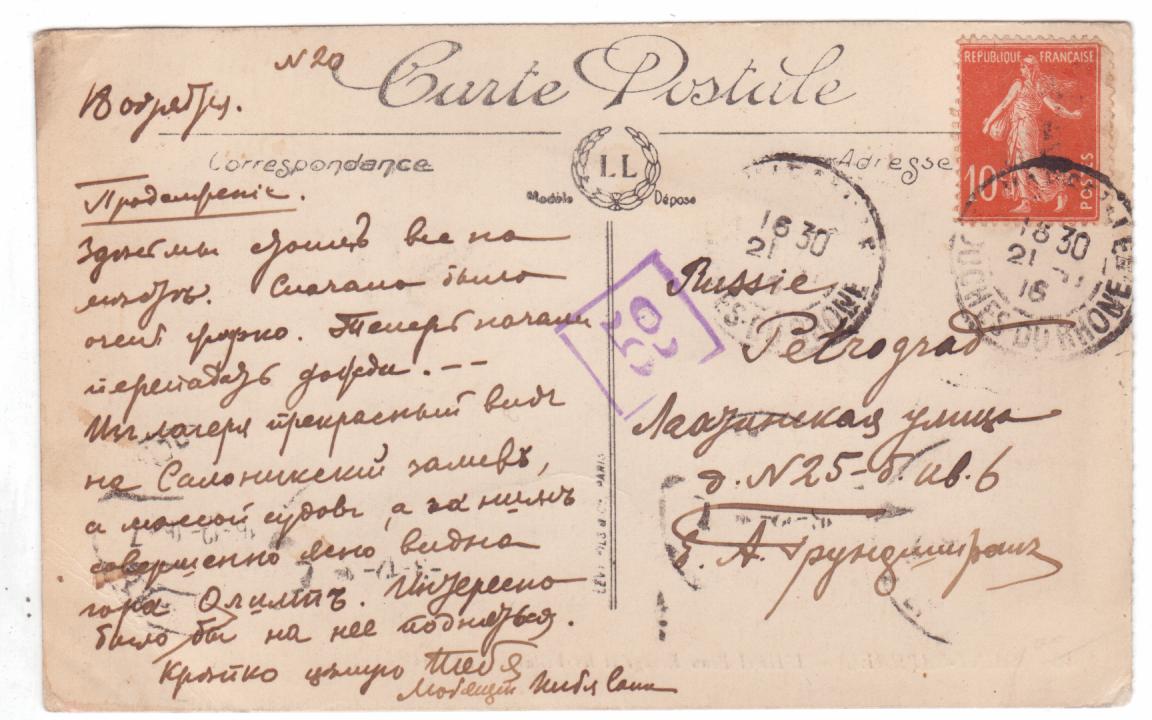 N 20
Carte Postale
Correspondance
Adresse
LL
Modèle Déposé
REPUBLIQUE FRANÇAISE
10
POSTES
16 30
21
16 30
21
16
BOUCHES-DU-RHONE
Продолженiе.
Здѣсь мы стоимъ все на
мѣстѣ. Сначала было
очень жарко. Теперь начали
перепадать дожди. --
Изъ лагеря прекрасный видъ
на Салоникскiй заливъ,
с массой судовъ, а за нимъ
совершенно ясно видна
гора Олимпъ. Интересно
было бы на нее подняться.
Крѣпко цѣлую Тебя
Любящiй Тебя Саша
Russie
Petrograd
улица
д. N 25-б. кв. 6
Е. А.
LEVY FILS & Cie PARIS